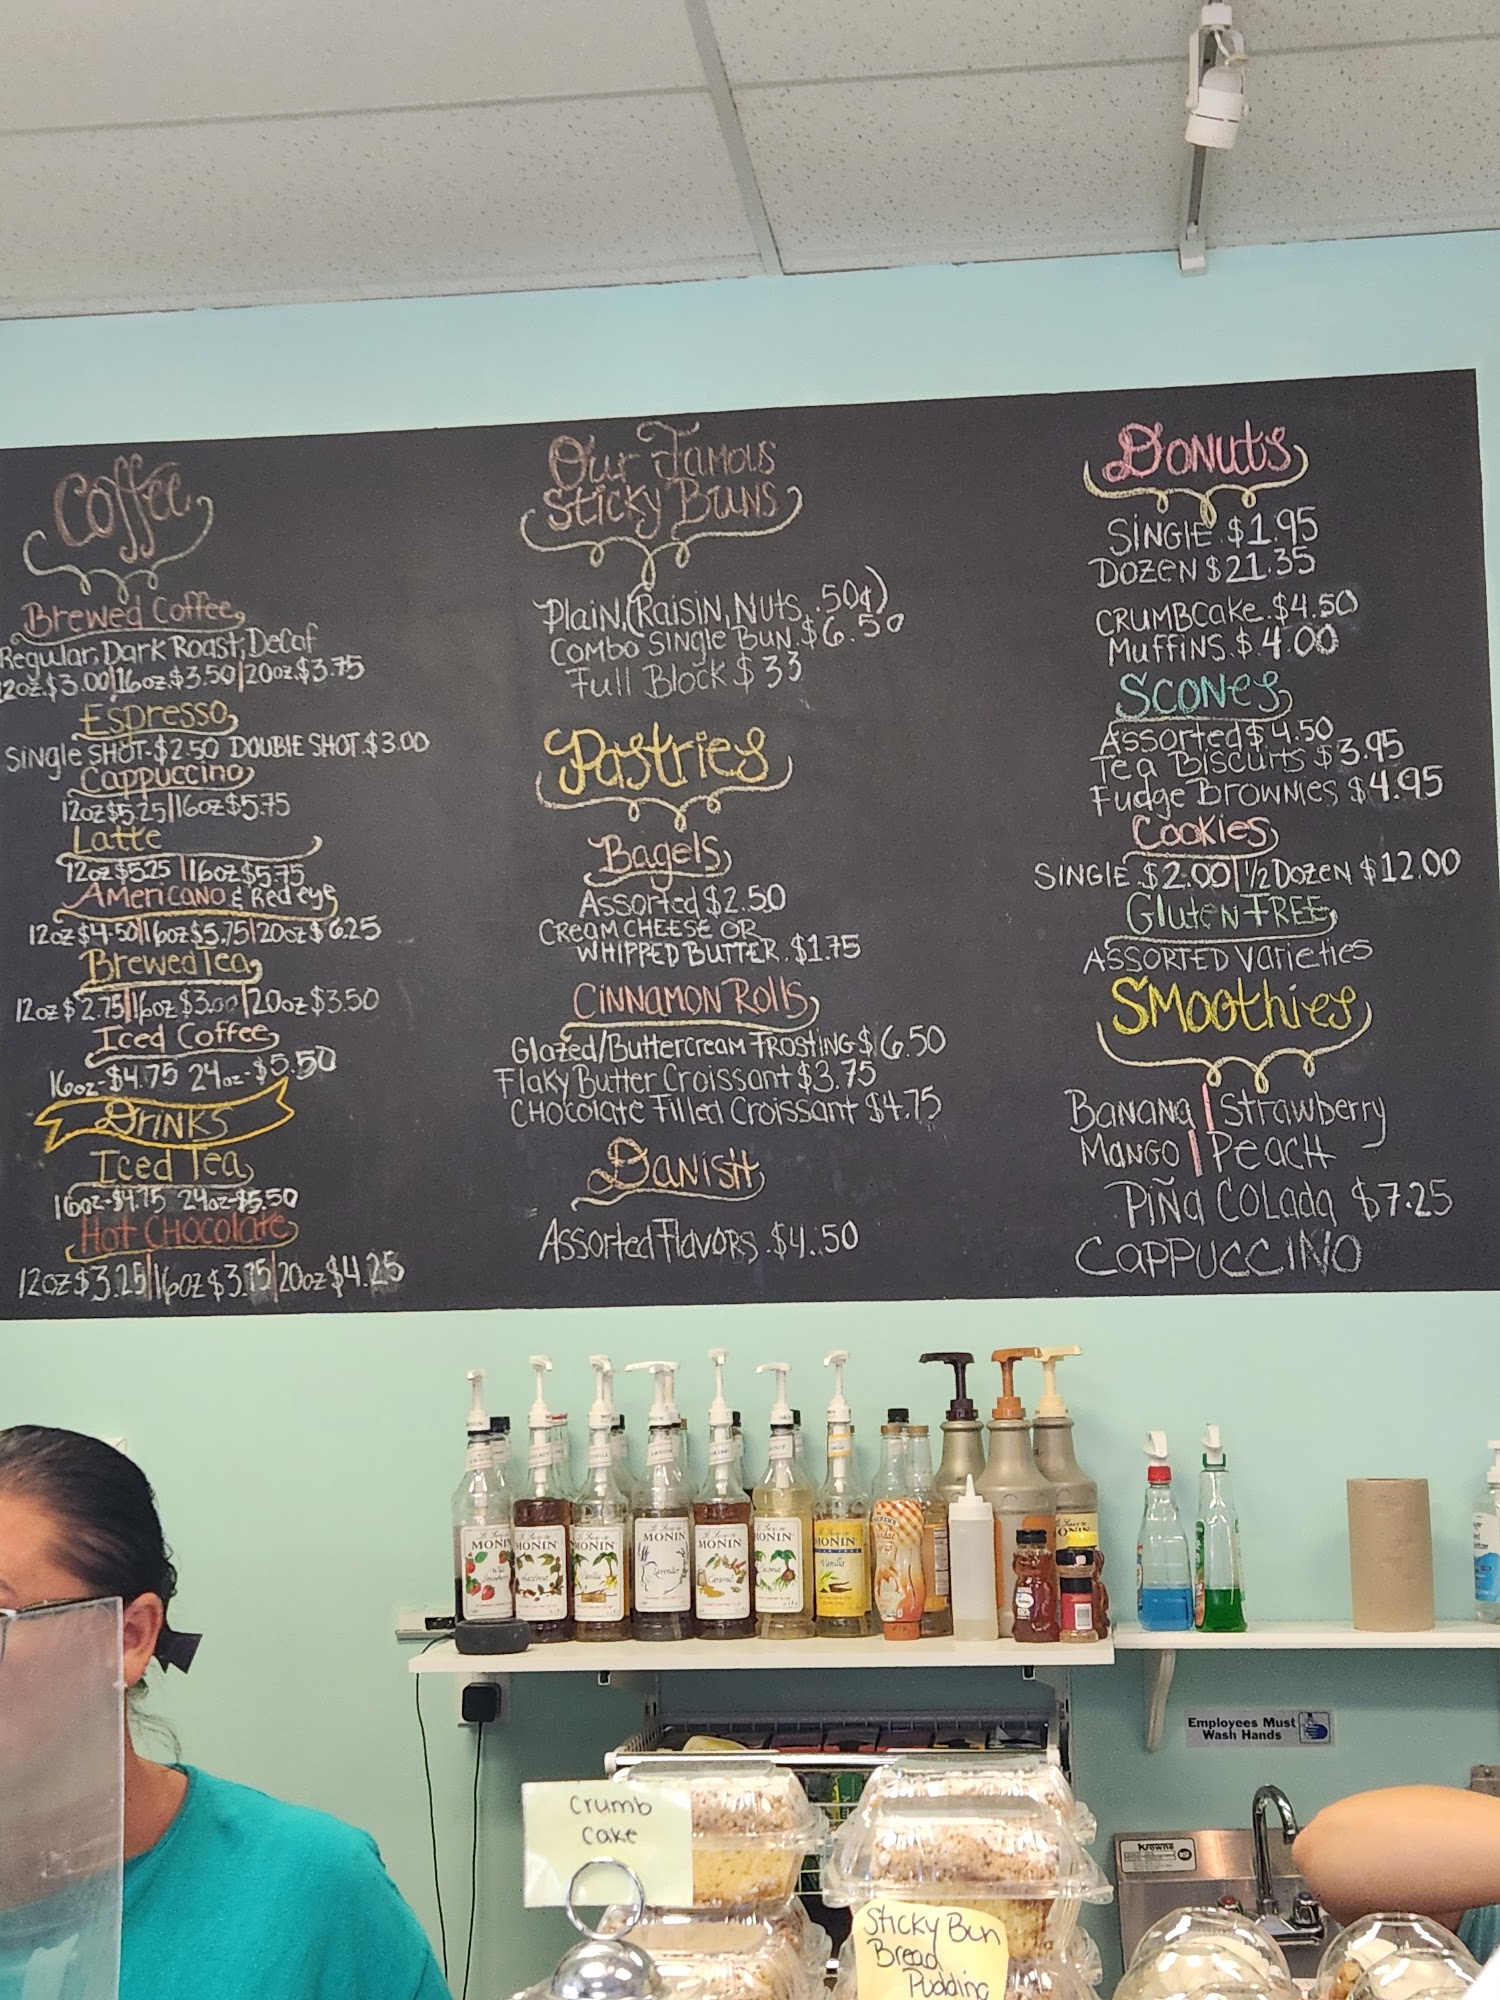 Coffee
Brewed Coffee
Regular, Dark Roast, Decaf
12oz.$3.00|16oz.$3.50|20oz.$3.75
Espresso
Single SHOT-$2.50 DOUBLE SHOT.$3.00
Cappuccino
12oz$5.25|16oz$5.75
Latte
12oz$5.25|16oz$5.75
Americano & Red eye
12oz$4.50|16oz$5.75|20oz$6.25
Brewed Tea
12oz$2.75|16oz$3.00|20oz$3.50
Iced Coffee
16oz-$4.75 24oz-$5.50
Drinks
Iced Tea
16oz-$4.75 24oz-$5.50
Hot CHocolate
12oz$3.25|16oz$3.75|20oz$4.25
Our Famous
Sticky Buns
Plain,(Raisin, Nuts, .50¢)
Combo Single Bun.$6.50
Full Block $33
Pastries
Bagels
Assorted $2.50
CREAM CHEESE OR
WHIPPED BUTTER.$1.75
CINNAMON Rolls
Glazed/Buttercream FROSTING $6.50
Flaky Butter Croissant $3.75
CHOcolate Filled Croissant $4.75
Danish
Assorted Flavors.$4.50
Donuts
SINGlE.$1.95
DOZEN $21.35
CRUMBCake.$4.50
MuffiNS.$4.00
Scones
Assorted $4.50
Tea Biscuits $3.95
Fudge Brownies $4.95
Cookies
SINGlE.$2.00|1/2 Dozen $12.00
Gluten FREE
ASSORTED Varieties
Smoothies
Banana|Strawberry
Mango|Peach
Piña Colada $7.25
CAPPUCCINO
MONIN
MONIN
Hazelnut
MONIN
Vanilla
MONIN
Lavender
MONIN
Caramel
MONIN
Coconut
MONIN
Vanilla
MONIN
Employees Must
Wash Hands
Krowne
NSF
Crumb
Cake
Sticky Bun
Bread
Pudding